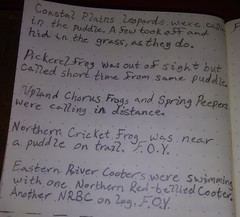 Coastal Plains Leopards were calling
in the puddle. A few took off and
hid in the grass, as they do.
Pickerel Frog was out of sight but
called short time from same puddle.
Upland Chorus Frogs and Spring Peepers
were calling in distance.
Northern Cricket Frog was near
a puddle on trail. F.O.Y.
Eastern River Cooters were swimming
with one Northern Red-bellied Cooter.
Another NRBC on log. F.O.Y.